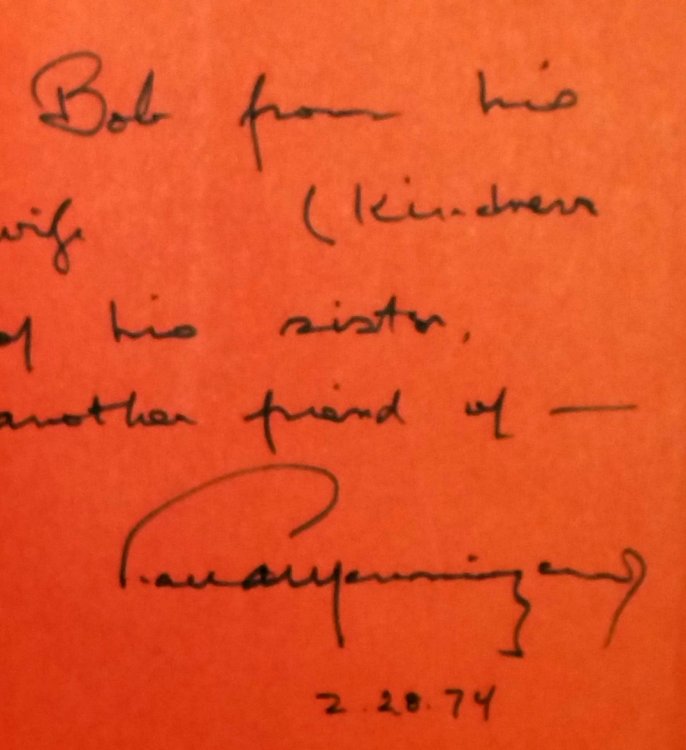 Bob from his
wife (Kindness
of his sister,
another friend of —
2.28.74